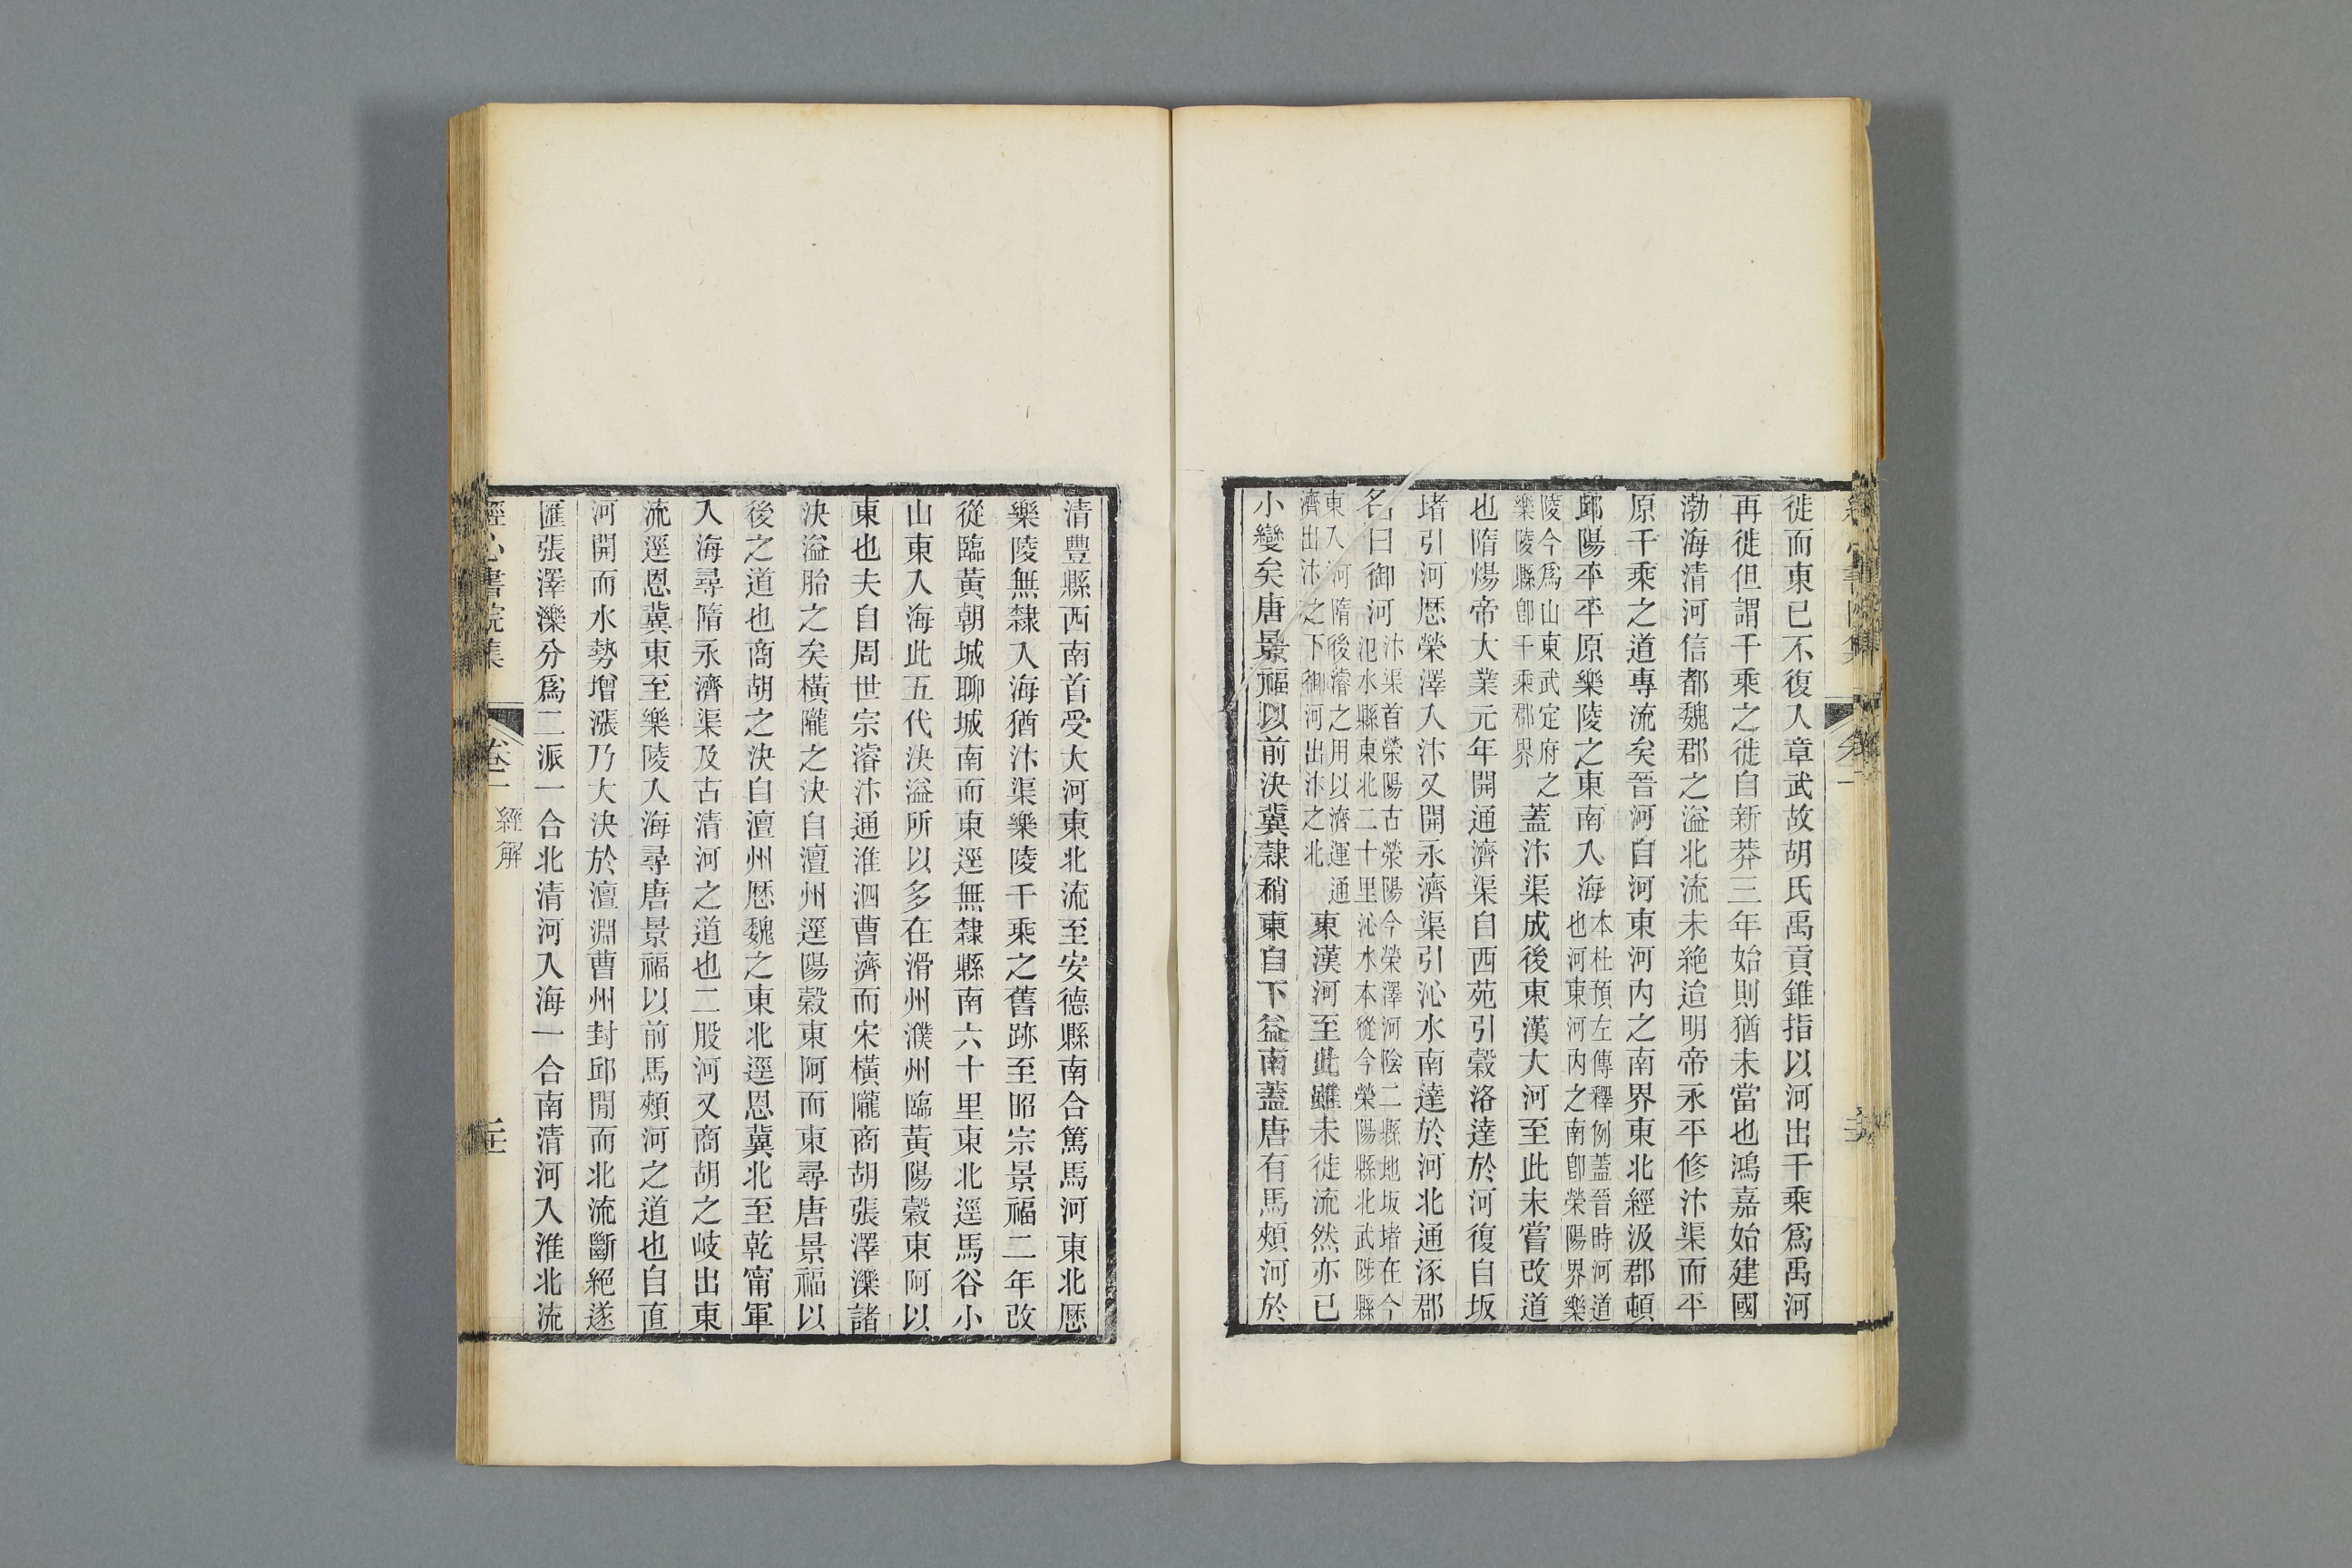 徙而東已不復入章武故胡氏禹貢錐指以河出千乘爲禹河
再徙但謂千乘之徙自新莽三年始則猶未當也鴻嘉始建國
渤海清河信都魏郡之溢北流未絶迨明帝永平修汴渠而平
原千乘之道專流矣晉河自河東河內之南界東北經汲郡頓
邱陽平平原樂陵之東南入海本杜預左傳釋例蓋晉時河道也河東河內之南卽榮陽界樂
陵今爲山東武定府之樂陵縣卽千乘郡界蓋汴渠成後東漢大河至此未嘗改道
也隋煬帝大業元年開通濟渠自西苑引穀洛達於河復自坂
堵引河歷榮澤入汴又開永濟渠引沁水南達於河北通涿郡
名曰御河汴渠首榮陽古榮陽今榮澤河陰二縣地坂堵在今汜水縣東北二十里沁水本從今榮陽縣北武陟縣
東入河隋後濬之用以濟運通濟出汴之下御河出汴之北東漢河至此雖未徙流然亦已
小變矣唐景福以前決冀隸稍東自下益南蓋唐有馬頰河於
清豐縣西南首受大河東北流至安德縣南合篤馬河東北歷
樂陵無隸入海猶汴渠樂陵千乘之舊跡至昭宗景福二年改
從臨黃朝城聊城南而東逕無隸縣南六十里東北逕馬谷小
山東入海此五代決溢所以多在滑州濮州臨黃陽穀東阿以
東也夫自周世宗濬汴通淮泗曹濟而宋橫隴商胡張澤濼諸
決溢胎之矣橫隴之決自澶州逕陽穀東阿而東尋唐景福以
後之道也商胡之決自澶州歷魏之東北逕恩冀北至乾甯軍
入海尋隋永濟渠及古清河之道也二股河又商胡之岐出東
流逕恩冀東至樂陵入海尋唐景福以前馬頰河之道也自直
河開而水勢增漲乃大決於澶淵曹州封邱閒而北流斷絶遂
匯張澤濼分爲二派一合北清河入海一合南清河入淮北流
經心書院集 卷一 經解